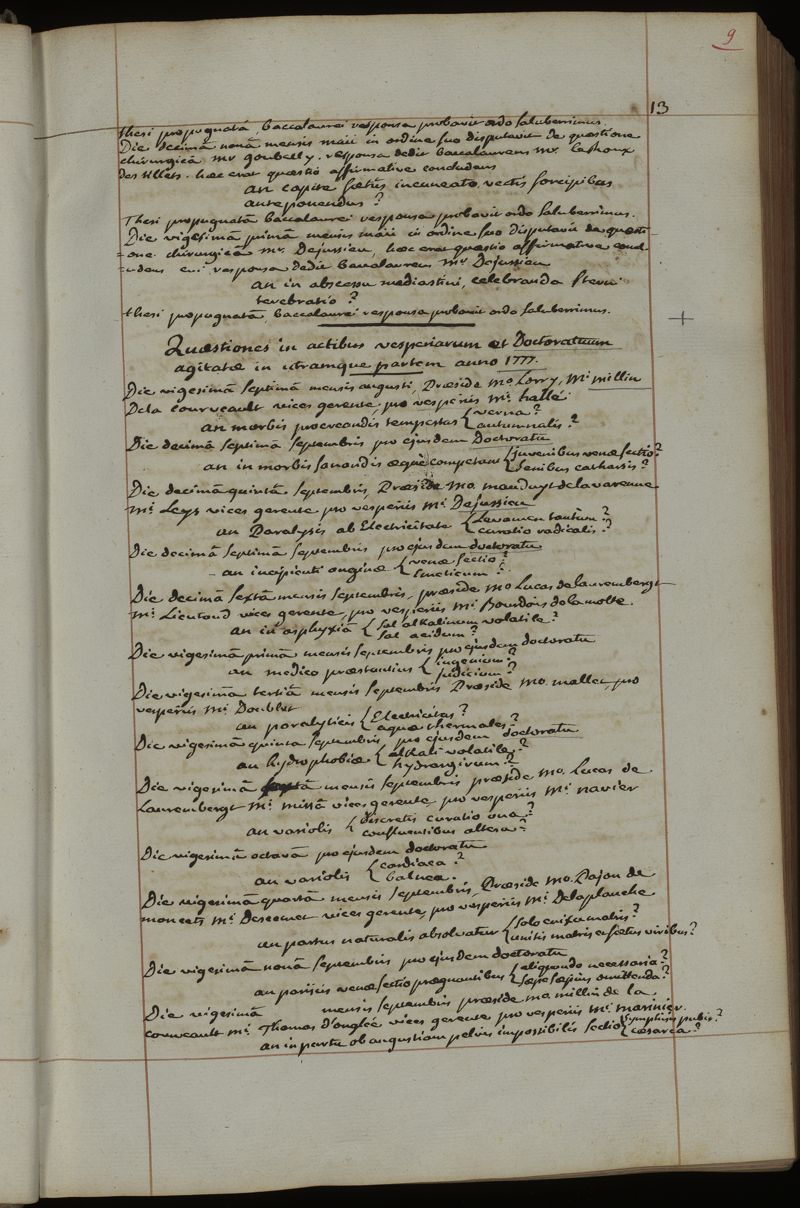 9
13
thesi propugnatâ, baccalaurei responsa probavit ordo saluberrimus.
Die decimâ nonâ mensis maii in ordine suo disputavit de quaestione
chirurgicâ mr goubelly. responsa dedit baccalaureus mr. Cashoux
des tillets. haec erat quaestio affirmative concludens
an capite foetûs incuneato, vectis forcipibus
anteponendus ?
Thesi propugnatâ baccalaurei responsa probavit ordo saluberrimus.
Die vigesimâ primâ mensis maii in ordine suo disputavit de quaesti
=one chirurgicâ mr. Dejussieu, haec erat quaestio affirmative conclu-
=udens cui responsa dedit baccalaureus Mr Dejussieu
an in abscessu mediastini, celebranda sterni
terebratio ?
thesi propugnatâ, baccalaurei responsa probavit ordo saluberrimus.
Quaestiones in actibus vesperiarum et Doctoratuum
agitatae in utramque partem anno 1777.
Die vigesimâ septimâ mensis augusti, Praeside mo. Lorry, Mr. millin
Dela courveault vices gerente, pro vesperiis Mr. hallé
an morbis procreandis tempestas { verna ?
autumnalis ?
Die decimâ septimâ septembris pro ejusdem Doctoratu
an in morbis sanandis aeque competant { juvenibus venae sectio ?
senibus catharsis ?
Die decimâ quintâ septembris, Praeside mo. mauduyt delavarenne
mr. Leys vices gerente pro vesperiis Mr. Dejussieu
an Paralysis ab Electricitate { Levamen tantum ?
curatio radicalis ?
Die decimâ septimâ septembris pro ejusdem doctoratu
an incipienti anginae { venae sectio ?
emeticum ?
Die decimâ sextâ mensis septembris, praeside mo Lucas de lauremberge
mr. Lieutaud vices gerente, pro vesperiis Mr. Bourdois delamotte.
an in asphyxiâ { sal alkalinum volatile ?
sal acidum ?
Die vigesimâ primâ mensis septembris pro ejusdem doctoratu
an medico praestantius { ingenium ?
judicium ?
Die vigesimâ tertiâ mensis septembris Praeside mo. mallet, pro
vesperiis Mr. Doublet
an paralyticis { Electricitas ?
aquae thermales ?
Die vigesimâ quinta septembris, pro ejusdem doctoratu
an hydrophobiae { alkali volatile ?
hydrargirum ?
Die vigesimâ mensis septembris praeside mo. Lucas de
Lauremberge Mr. missâ vices gerente, pro vesperiis Mr. navier
an variolis { discretis curatio una ?
confluentibus altera ?
Die vigesimâ octavâ pro ejusdem doctoratu
an variolis { cardiaca ?
balnea.
Die vigesimâ quartâ mensis septembris, Praeside mo. Pajon de
moncets Mr. Descemet vices gerente, pro vesperiis Mr. Delaplanche
an partus naturalis absolvatur { solo nixu matris ?
unitis matris et foetus viribus ?
Die vigesimâ nonâ septembris pro ejusdem doctoratu
an parisiis venae sectio praegnantibus { aliquando necessaria ?
saepe saepius omittenda ?
Die vigesimâ mensis septembris praeside mo millin de la
courveault Mr. Thomas D'onglée vices gerente pro vesperiis Mr. marinier.
an in partu ob angustiam pelvis impossibili sectio { symphisis pubis ?
caesarea ?